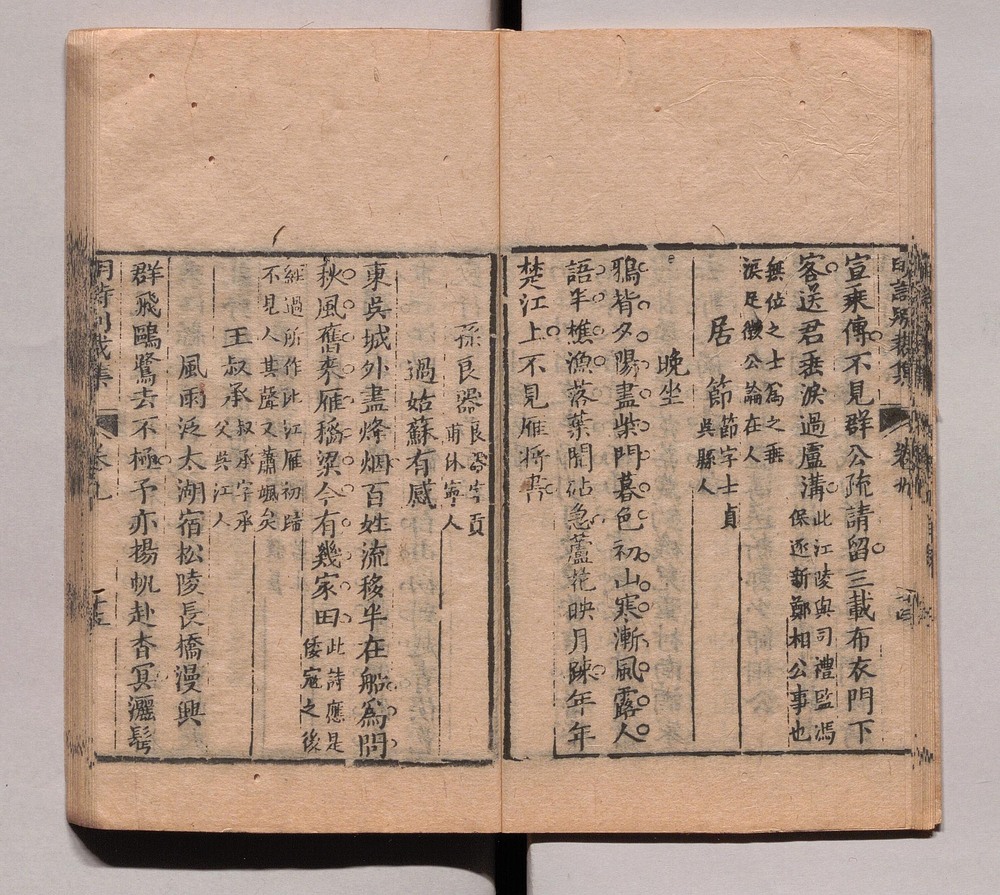 宣乘傳不見群公疏請留三載布衣門下
客送君垂淚過盧溝
此江陵與司禮監馮
保逐新鄭相公事也
無位之士爲之垂
淚足徵公論在人
居節
節字士貞
吳縣人
晚坐
鴉背夕陽盡柴門暮色初山寒漸風露人
語半樵漁落葉聞砧急蘆花映月疎年年
楚江上不見雁將書
孫良器
良器字貢
甫休寧人
過姑蘇有感
東吳城外盡烽烟百姓流移半在船爲問
秋風舊來雁稻粱今有幾家田
此詩應是
倭寇之後
經過所作比江雁初歸
不見人其聲又蕭颯矣
王叔承
叔承字承
父吳江人
風雨泛太湖宿松陵長橋漫興
群飛鷗鷺去不極予亦揚帆赴杳冥灑髩
明詩別裁集
卷九